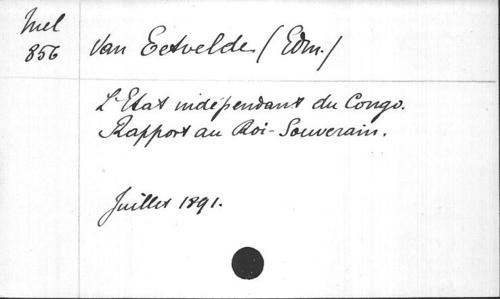 Mel
856
Van Eetvelde (Edm.)
L'Etat indépendant du Congo.
Rapport au Roi-Souverain.
Juillet 1891.